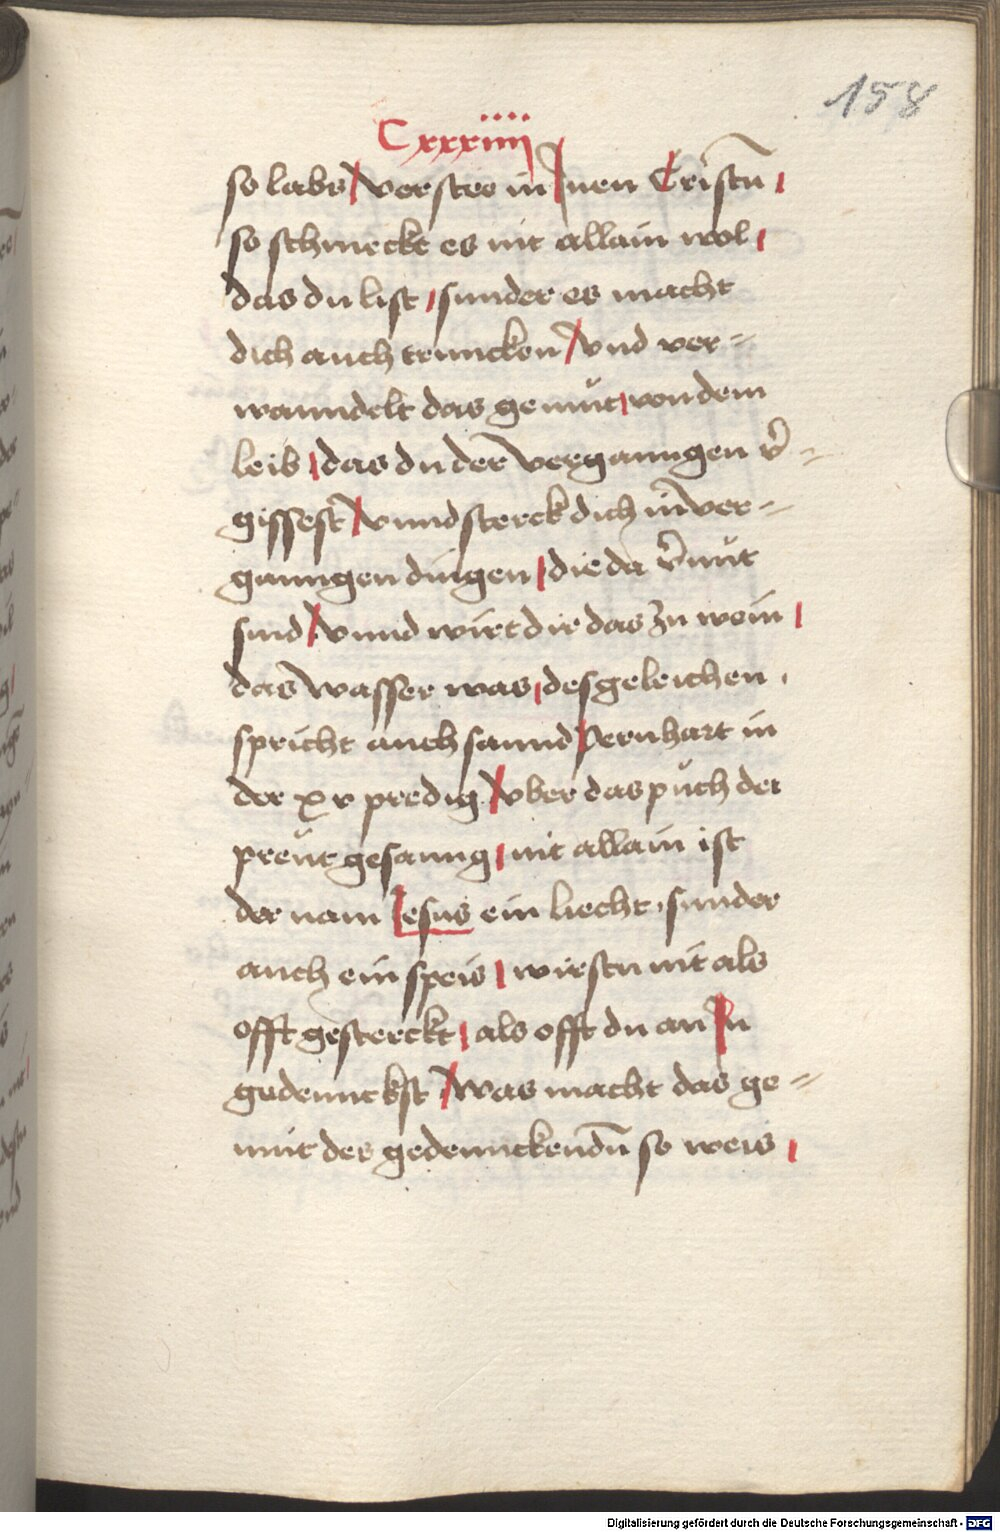 158
Cxxxiiii
so labs / verstee in Inen Cristū /
so schmeckt es nit allain wol /
das du list / sunder es macht
dich auch truncken / vnd ver=
wanndelt das gemüt / von dem
leib / das du der vergannngen v̄=
gissest / vnnd sterck dich in ver=
ganngen dingen / die da v̄nüt
sind / vnnd wirt dir das zu wein /
das wasser was / desgeleichen .
spricht auch sannd Bernhart in
der xv predig / vber das püch der
preüt gesanng / nit allain ist
der nam Jesus ein liecht , sunder
auch ein speis / wirstu nit als
offt gesterckt / als offt du an In
gedennckst / was macht das ge=
müt des gedennckendn̄ so weis /
Digitalisierung gefördert durch die Deutsche Forschungsgemeinschaft - DFG